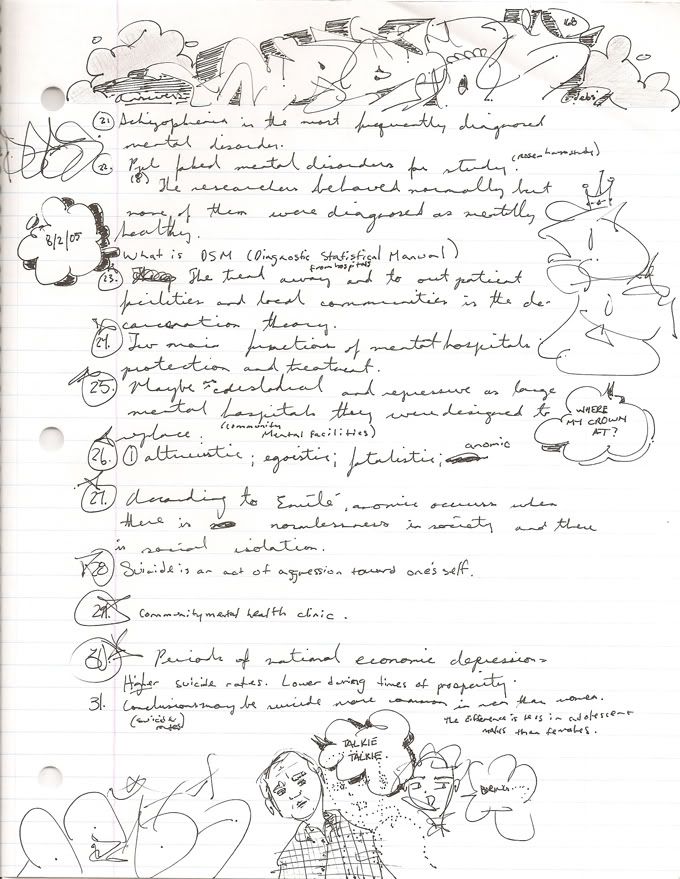 168
Answers
(21) Schizophrenia is the most frequently diagnosed
mental disorder.
22. Ppl faked mental disorders for study. (rosenhan study)
(8) The researchers behaved normally but
none of them were diagnosed as mentally
healthy.
8/2/05
What is DSM (Diagnostic Statistical Manual)
23. The trend away from hospitals and to out patient
facilities and local communities is the de-
carceration theory.
24. Two main function of mental hospitals:
protection and treatment.
25. Maybe as custodial and repressive as large
mental hospitals they were designed to
replace. (community Mental Facilities)
WHERE
MY CROWN
AT?
26. ① altruistic; egoistic; fatalistic; anomic
27. According to Emile, anomic occurs when
there is normlessness in society and there
is social isolation.
28 Suicide is an act of aggression toward one's self.
29. Community mental health clinic.
30. Periods of national economic depression =
Higher suicide rates. Lower during times of prosperity.
31. Conclusions may be suicide more common in men than women.
(suicide rates)
The difference is less in adolescent
males than females.
TALKIE
TALKIE.